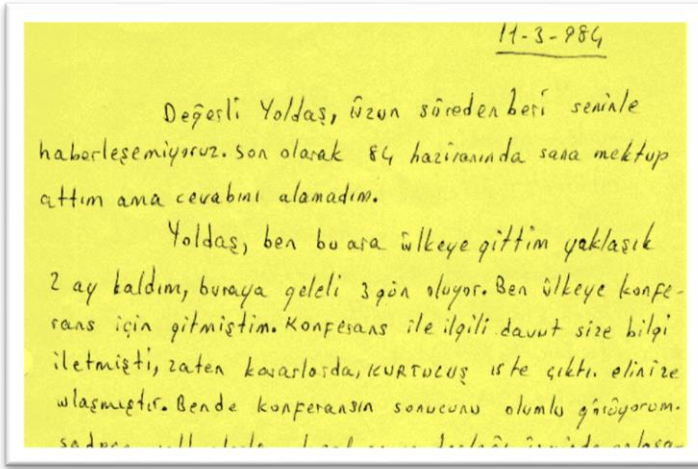 11-3-984
Değerli Yoldaş, üzun süredenberi seninle
haberleşemiyoruz. son olarak 84 haziranında sana mektup
attım ama cevabını alamadım.
Yoldaş, ben bu ara ülkeye gittim yaklaşık
2 ay kaldım, buraya geleli 3 gün oluyor. Ben ülkeye konfe-
rans için gitmiştim. Konferans ile ilgili davut size bilgi
iletmişti, zaten kararlarda, KURTULUŞ iste çıktı. elinize
ulaşmıştır. Bende konferansın sonucunu olumlu görüyorum.